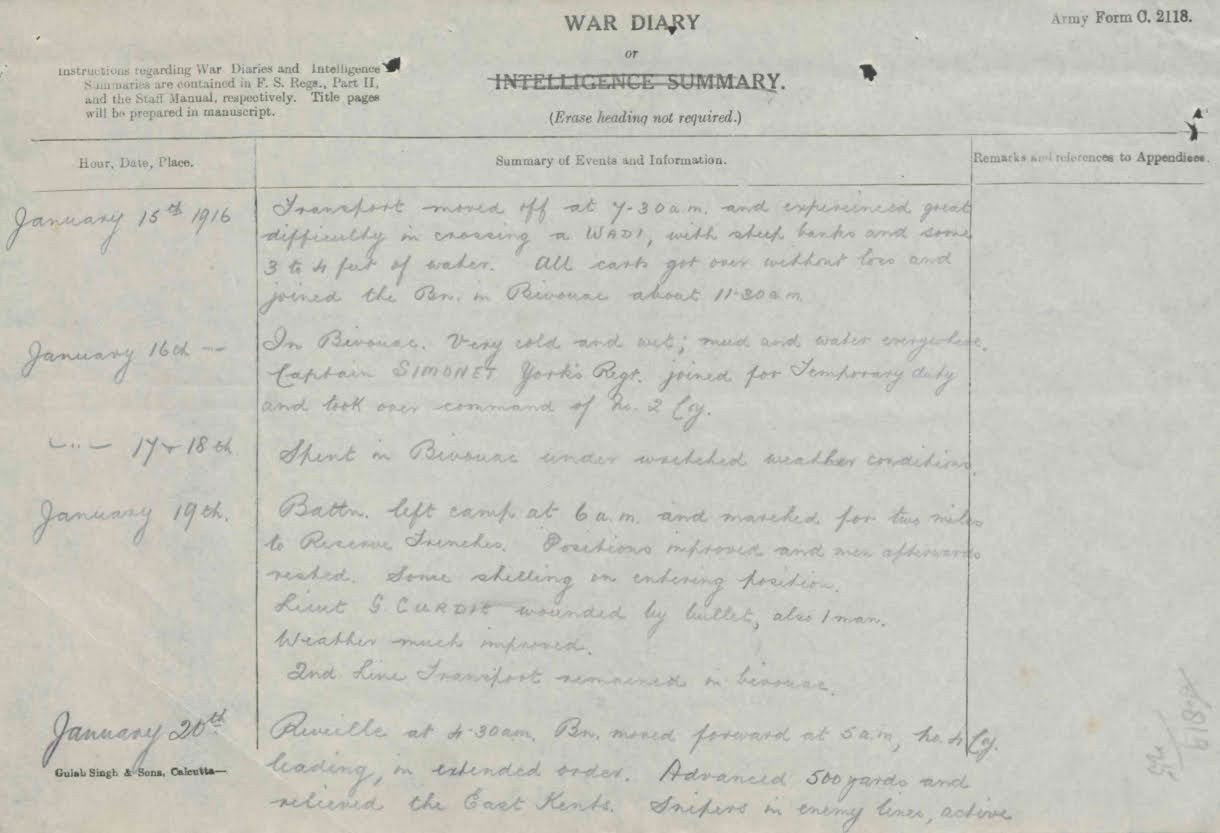 WAR DIARY
Army Form C. 2118.
or
INTELLIGENCE SUMMARY.
(Erase heading not required.)
Instructions regarding War Diaries and Intelligence
Summaries are contained in F. S. Regs., Part II,
and the Staff Manual, respectively. Title pages
will be prepared in manuscript.
Hour, Date, Place.
Summary of Events and Information.
Remarks and references to Appendices.
January 15th 1916
Transport moved off at 7-30 a.m. and experienced great
difficulty in crossing a WADI, with steep banks and some
3 to 4 feet of water. All carts got over without loss and
joined the Bn. in Bivouac about 11-30 a.m.
January 16th —
In Bivouac. Very cold and wet; mud and water everywhere.
Captain SIMONET York's Regt. joined for Temporary duty
and took over command of No. 2 Coy.
—"— 17 & 18th
Spent in Bivouac under wretched weather conditions.
January 19th.
Battn. left camp at 6 a.m. and marched for two miles
to Reserve Trenches. Positions improved and men afterwards
rested. Some shelling on entering position.
Lieut G. wounded by bullet, also 1 man.
Weather much improved.
2nd Line Transport remained in bivouac.
January 20th
Reveille at 4-30 am. Bn. moved forward at 5 a.m, No. 4 Coy.
leading, in extended order. Advanced 500 yards and
relieved the East Kents. Snipers in enemy lines, active
Gulab Singh & Sons, Calcutta—